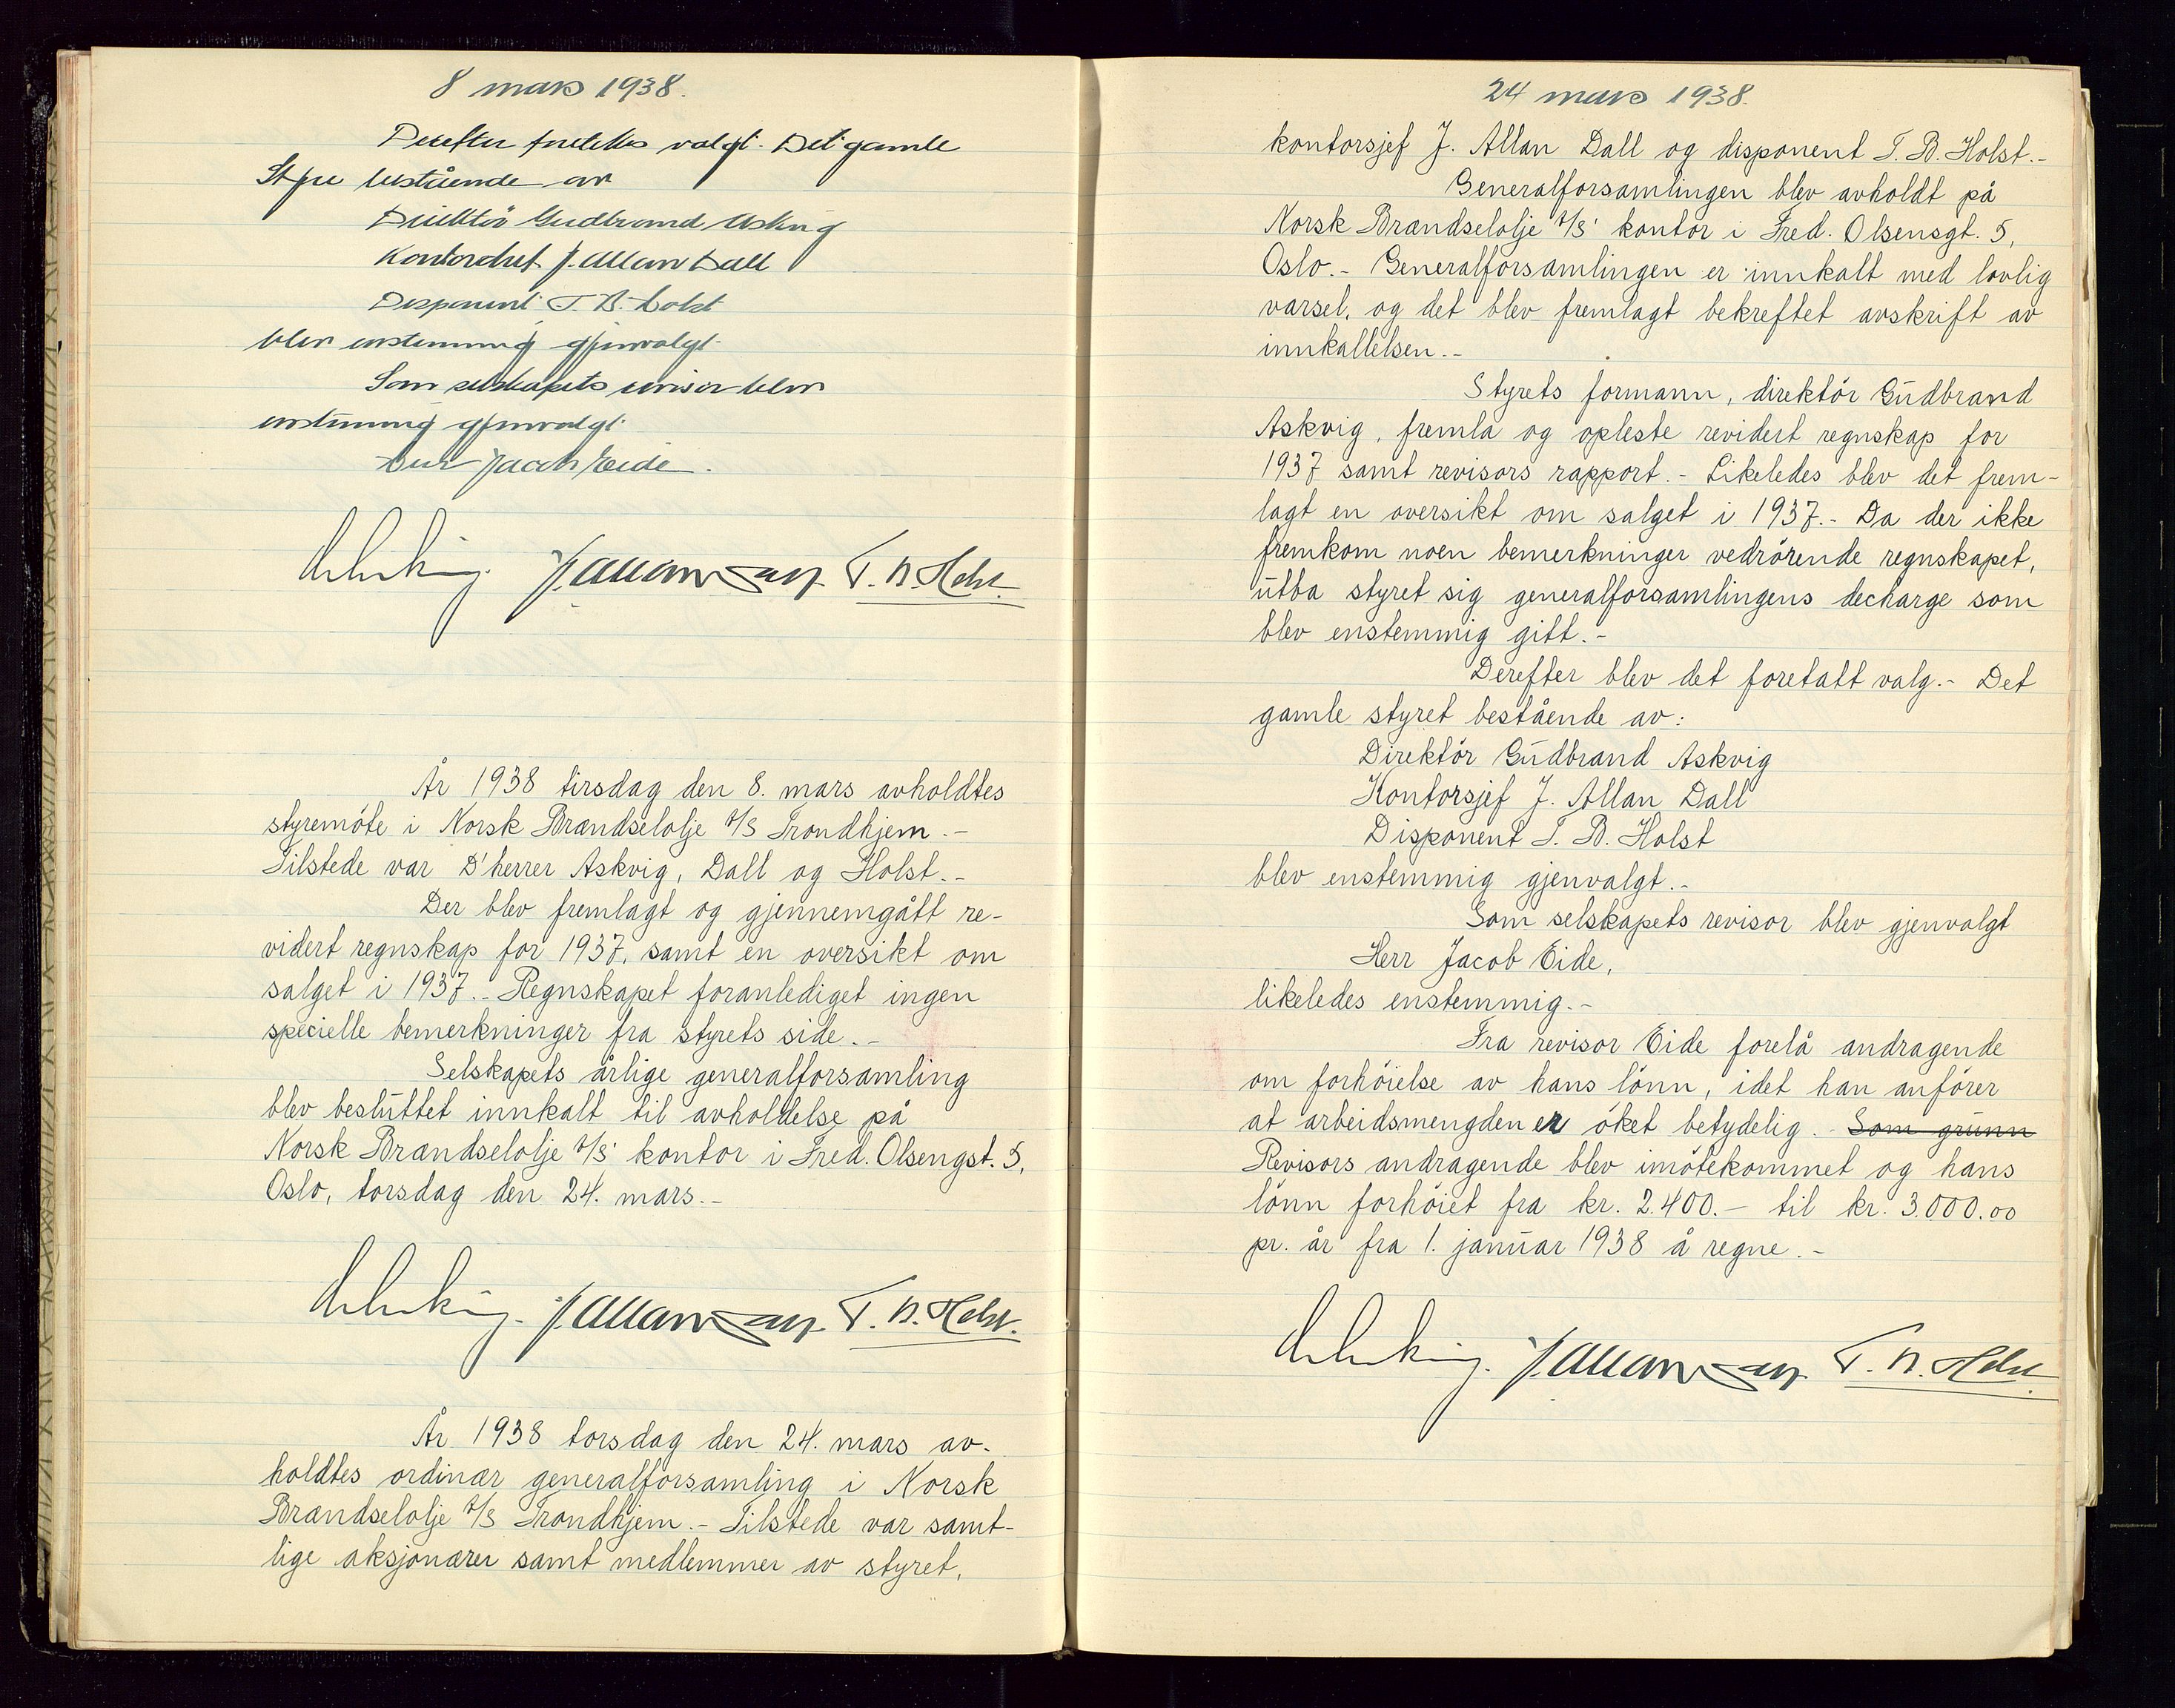 8 mars 1938.
Derefter fretokes valgt. Det gamle
Styre bestående av
Direktör Gudbrand Askvig
Kontorchef J. Allan Dall
Disponent T. B. Holst
blev enstemmig gjenvalgt.
Som selskapets revisor blev
enstemmig gjenvalgt.
Herr Jacob Eide.
J. Allan Dall T. B. Holst.
År 1938 tirsdag den 8. mars avholdtes
styremöte i Norsk Brændselolje A/S Trondhjem.-
Tilstede var D'herrer Askvig, Dall og Holst.-
Der blev fremlagt og gjennemgått re-
vidert regnskap for 1937, samt en oversikt om
salget i 1937.- Regnskapet foranlediget ingen
specielle bemerkninger fra styrets side.-
Selskapets årlige generalforsamling
blev besluttet innkalt til avholdelse på
Norsk Brændselolje A/S' kontor i Fred. Olsengst. 5,
Oslo, torsdag den 24. mars.-
J. Allan Dall T. B. Holst.
År 1938 torsdag den 24. mars av-
holdtes ordinær generalforsamling i Norsk
Brændselolje A/S Trondhjem.- Tilstede var samt-
lige aksjonærer samt medlemmer av styret,
24 mars 1938.
kontorsjef J. Allan Dall og disponent T. B. Holst.-
Generalforsamlingen blev avholdt på
Norsk Brændselolje A/S' kontor i Fred. Olsensgt. 5,
Oslo.- Generalforsamlingen er innkalt med lovlig
varsel, og det blev fremlagt bekreftet avskrift av
innkallelsen.-
Styrets formann, direktör Gudbrand
Askvig, fremla og opleste revidert regnskap for
1937 samt revisors rapport.- Likeledes blev det frem-
lagt en oversikt om salget i 1937.- Da der ikke
fremkom noen bemerkninger vedrörende regnskapet,
utba styret sig generalforsamlingens decharge som
blev enstemmig gitt.-
Derefter blev det foretatt valg.- Det
gamle styret bestående av:
Direktör Gudbrand Askvig
Kontorsjef J. Allan Dall
Disponent T. B. Holst
blev enstemmig gjenvalgt.-
Som selskapets revisor blev gjenvalgt
Herr Jacob Eide,
likeledes enstemmig.-
Fra revisor Eide forelå andragende
om forhöielse av hans lönn, idet han anförer
at arbeidsmengden er öket betydelig. Som grunn
Revisors andragende blev imötekommet og hans
lönn forhöiet fra kr. 2.400.- til kr. 3.000.00
pr. år fra 1. januar 1938 å regne.-
J. Allan Dall T. B. Holst